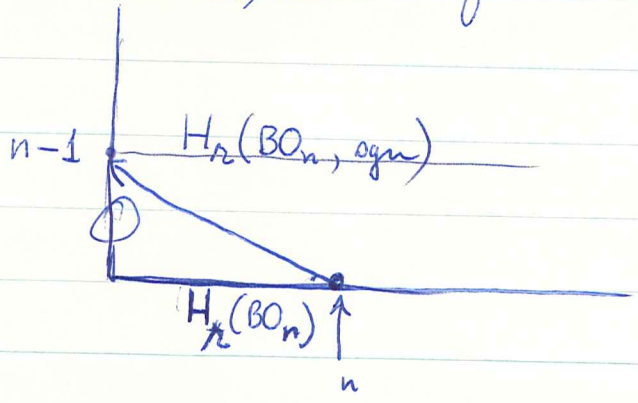 n-1 H_r(BO_n, sgn)
O
H_r(BO_n)
n